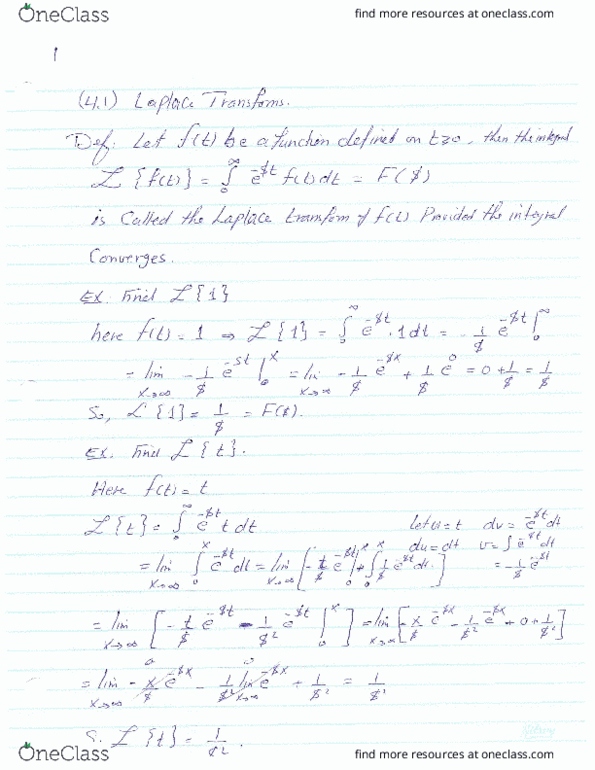 OneClass
find more resources at oneclass.com
1
(4.1) Laplace Transforms.
Def: Let f(t) be a function defined on t≥0, then the integral
ℒ {f(t)} = ∫₀^∞ e^{-$t} f(t) dt = F($)
is Called the Laplace transform of f(t) Provided the integral
Converges.
EX. Find ℒ{1}
here f(t) = 1 ⇒ ℒ{1} = ∫₀^∞ e^{-$t}. 1 dt = - 1/$ e^{-$t} |₀^∞
= lim_{x→∞} - 1/$ e^{-st} |₀^x = lim_{x→∞} - 1/$ e^{-$x} + 1/$ e^0 = 0 + 1/$ = 1/$
So, ℒ{1} = 1/$ = F($).
EX. Find ℒ{t}.
Here f(t) = t
ℒ{t} = ∫₀^∞ e^{-$t} t dt let u = t dv = e^{-$t} dt
du = dt v = ∫ e^{-$t} dt
= lim_{x→∞} ∫₀^x e^{-$t} dt = lim_{x→∞} [- t/$ e^{-$t} |₀^x + ∫₀^x 1/$ e^{-$t} dt] = - 1/$ e^{-$t}
= lim_{x→∞} [- t/$ e^{-$t} - 1/$² e^{-$t} |₀^x] = lim_{x→∞} [- x/$ e^{-$x} - 1/$² e^{-$x} + 0 + 1/$²]
= lim_{x→∞} - x/$ e^{-$x} 0 - 1/$² lim_{x→∞} e^{-$x} 0 + 1/$² = 1/$²
So ℒ{t} = 1/$².
OneClass
find more resources at oneclass.com